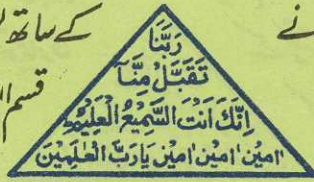 نے
کے ساتھ
رَبَّنَا
تَقَبَّلْ مِنَّا
اِنَّكَ اَنْتَ السَّمِيْعُ الْعَلِيْمُ
اٰمِيْن اٰمِيْن اٰمِيْن يَا رَبَّ الْعٰلَمِيْنَ